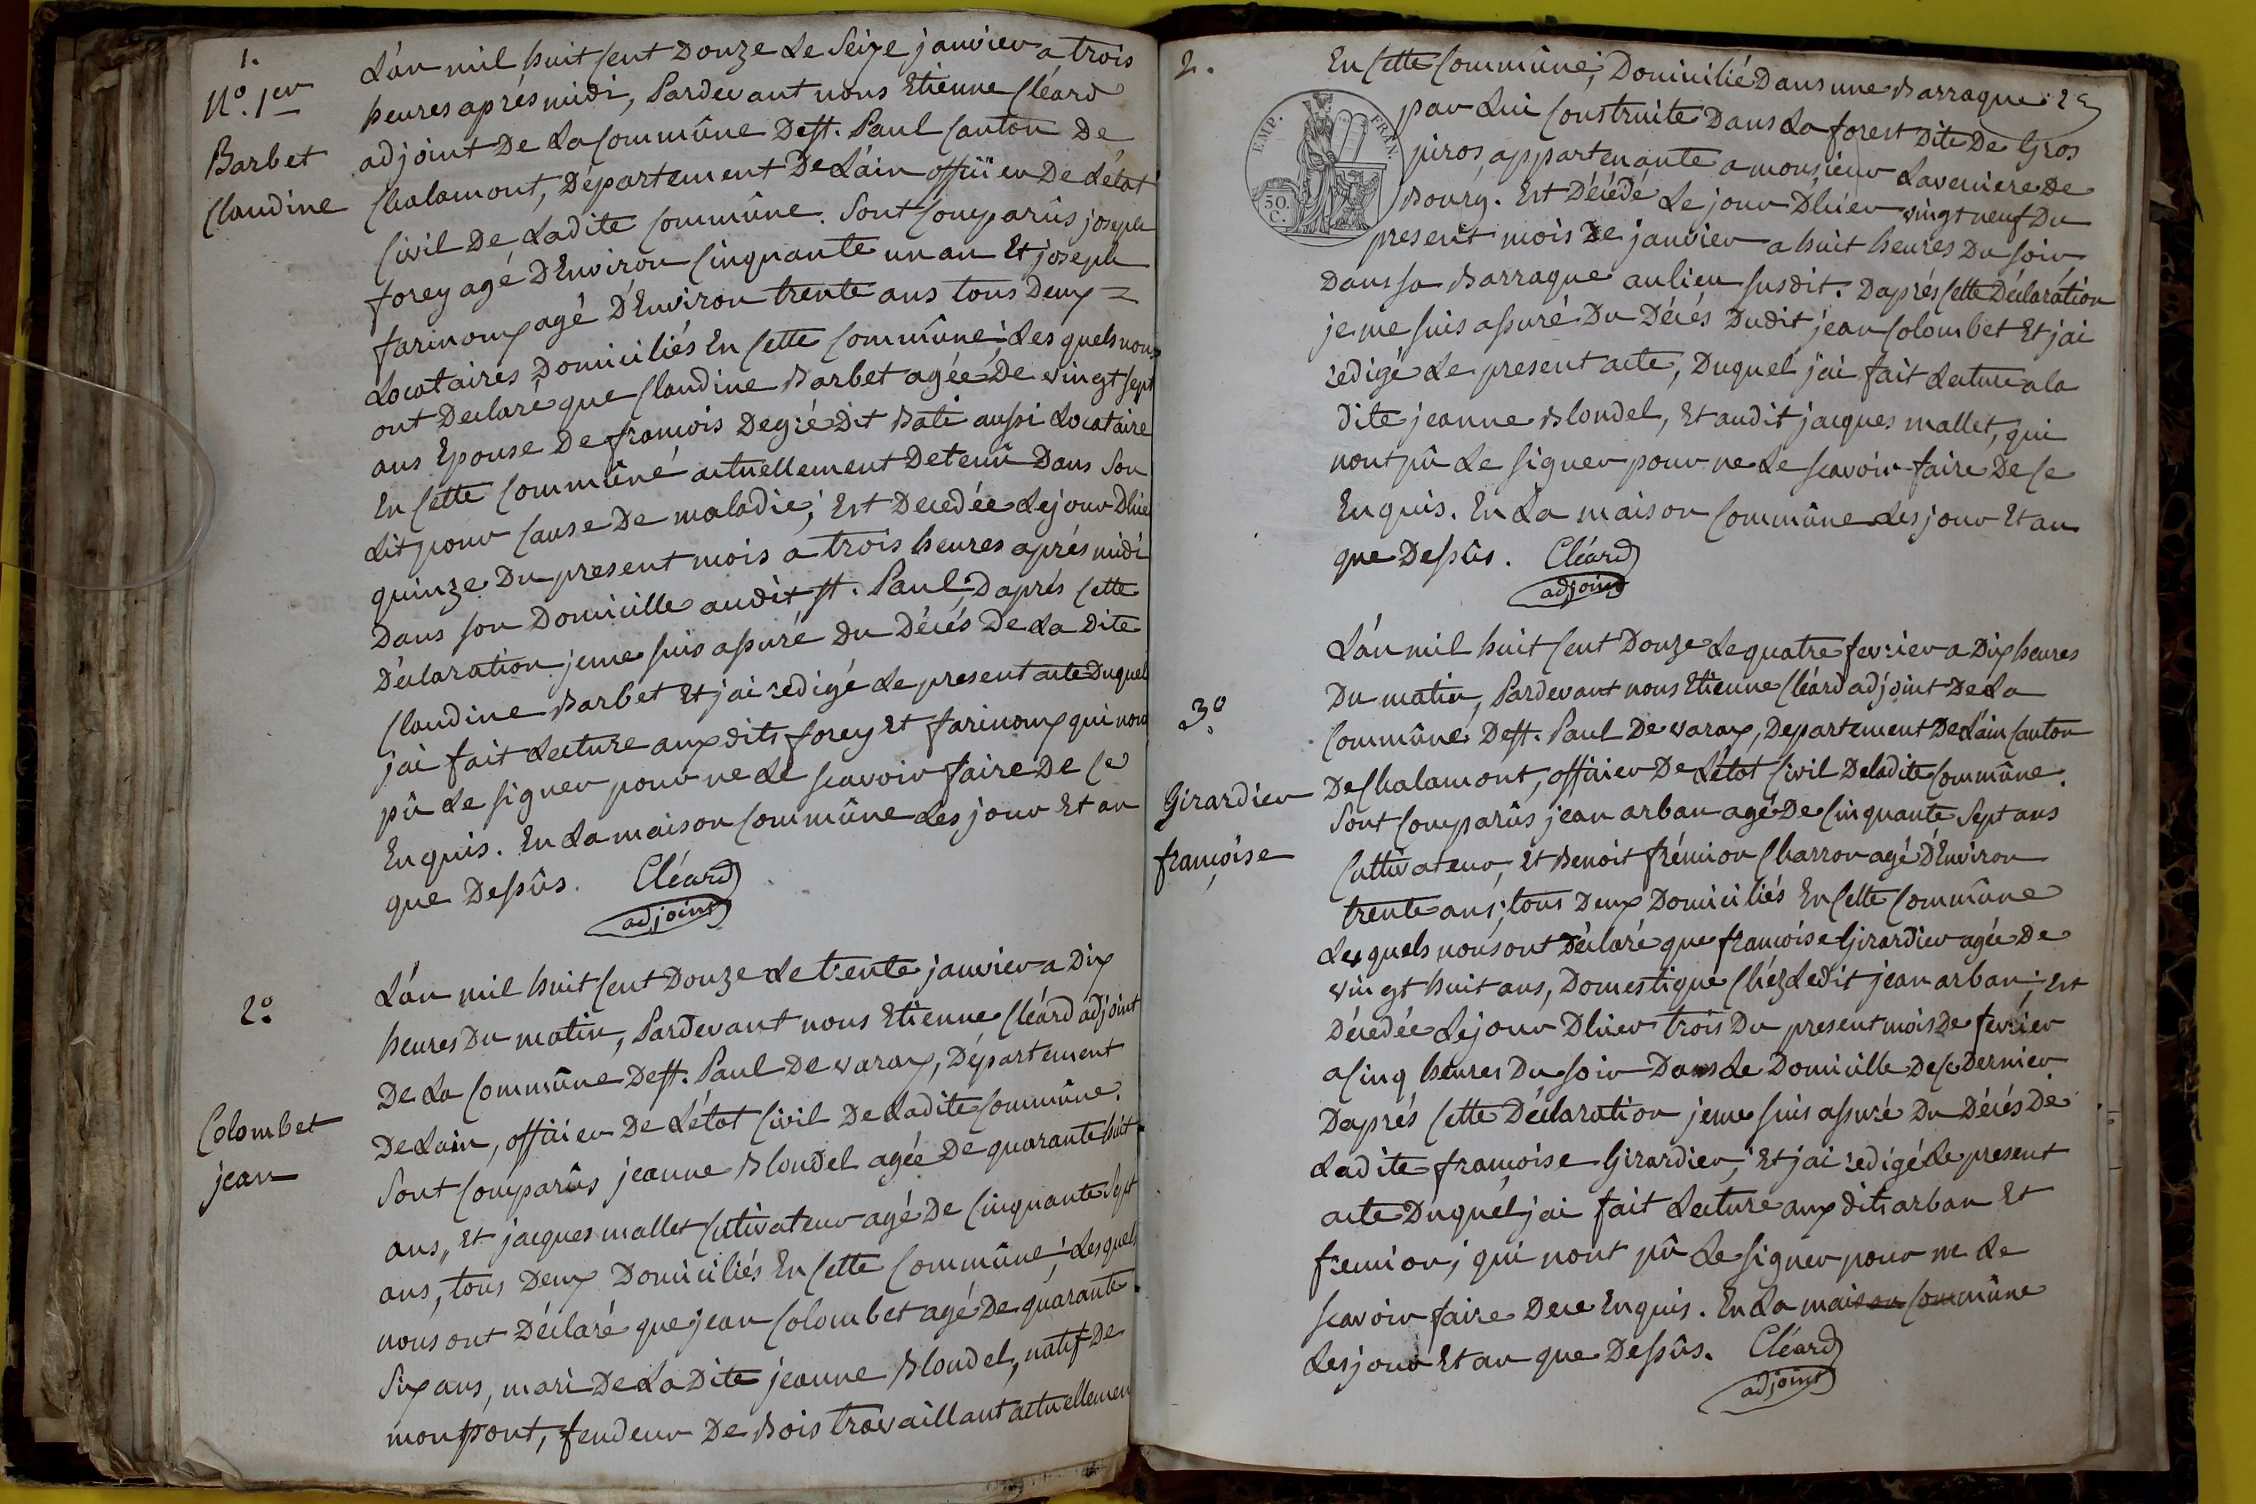 1.
N.o 1er
Barbet
Claudine
L'án mil huit Cent Douze Le Seize janvier a trois
heures aprés midi, Pardevant nous Etienne Cléard
adjoint De La Commûne De St. Paul Canton De
Chalamont, Département De L'áin officier De L'état
Civil De Ladite Commûne. Sont Comparûs joseph
forey agé D'Environ Cinquante un an Et joseph
farinoux agé D'Environ trente ans tous Deux =
Locataires Domiciliés En Cette Commûne; Les quels nous
ont Declaré que Claudine Barbet agée De vingt Sept
ans Epouse De francois Degré Dit Bati aussi Locataire
En Cette Commûne actuellement Detenû Dans Son
Lit pour Cause De maladie; Est Decedée Le jour Dhier
quinze Du present mois a trois heures aprés midi
Dans son Domicille audit St. Paul, D'aprés Cette
Déclaration je me suis assuré Du Décés De La Dite
Claudine Barbet Et j'ai redigé Le present acte Duquel
j'ai fait Lecture aux dits forey Et farinoux qui nont
pû Le signer pour ne Le scavoir faire De Ce
Enquis. En La maison Commûne Les jour Et an
que Dessûs. Cléard
adjoint
2.o
Colombet
jean
L'án mil huit Cent Douze Le trente janvier a Dix
heures Du matin, Pardevant nous Etienne Cléard adjoint
De La Commûne De St. Paul De varax, Département
De Lain, officier De L'état Civil De Ladite Commûne.
Sont Comparûs jeanne Blondel agée De quarante huit
ans, Et jacques mallet Cutivateur agé De Cinquante Sept
ans, tous Deux Domiciliés En Cette Commûne; Les quels
nous ont Déclaré que jean Colombet agé De quarante
Six ans, mari De La Dite jeanne Blondel, natif De
montpont, fendeur De Bois travaillant actuellemen
2.
En Cette Commûne; Domicilié Dans une Barraque
par Lui Construite Dans La forest Dite De Gros
piros appartenante a monsieur Laveniere De
Bourg. Est Décédé Le jour D'hier vingt neuf Du
present mois De janvier a huit heures Du soir
Dans sa Barraque au lieu susdit. D'aprés Cette Déclaration
je me suis assuré Du Décés Dudit jean Colombet Et j'ai
redigé Le present acte, Duquel j'ai fait Lecture a la
dite jeanne Blondel, Et audit jacques mallet, qui
nont pû Le signer pour ne Le scavoir faire De Ce
Enquis. En La maison Commûne Les jour Et an
que Dessûs. Cléard
adjoint
EMP. FRAN.
50.
C.
3.o
Girardier
françoise
L'án mil huit Cent Douze Le quatre fevrier a Dix heures
Du matin, Pardevant nous Etienne Cléard adjoint De La
Commûne De St. Paul De varax, Departement De L'ain Canton
De Chalamont, officier De L'état Civil De ladite Commûne.
Sont Comparûs jean arban agé De Cinquante Sept ans
Cultivateur, Et Benoit frémion Charron agé D'Environ
trente ans; tous Deux Domiciliés En Cette Commûne
Lesquels nous ont Déclaré que françoise Girardier agée De
vingt huit ans, Domestique Chéz Ledit jean arban; Est
Décedée Le jour D'hier trois Du present mois De fevrier
a Cinq heures Du soir Dans Le Domicille De Ce Dernier
D'aprés Cette Déclaration je me suis assuré Du Décés De
Ladite françoise Girardier; Et j'ai redigé Le present
acte Duquel j'ai fait Lecture aux dits arban Et
fremion; qui nont pû Le signer pour ne Le
scavoir faire De ce Enquis. En La maison Commûne
Les jour Et an que Dessûs. Cléard
adjoint